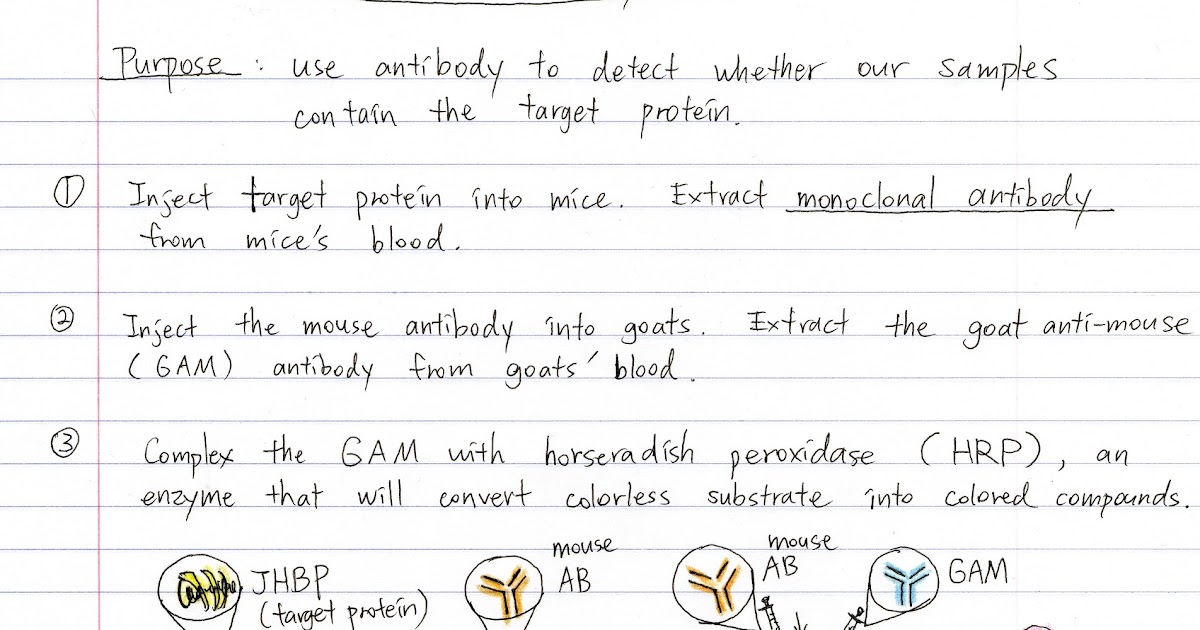 Purpose : use antibody to detect whether our samples
contain the target protein.
① Inject target protein into mice. Extract monoclonal antibody
from mice's blood.
② Inject the mouse antibody into goats. Extract the goat anti-mouse
(GAM) antibody from goats' blood.
③ Complex the GAM with horseradish peroxidase (HRP), an
enzyme that will convert colorless substrate into colored compounds.
JHBP
(target protein)
mouse
AB
mouse
AB
GAM